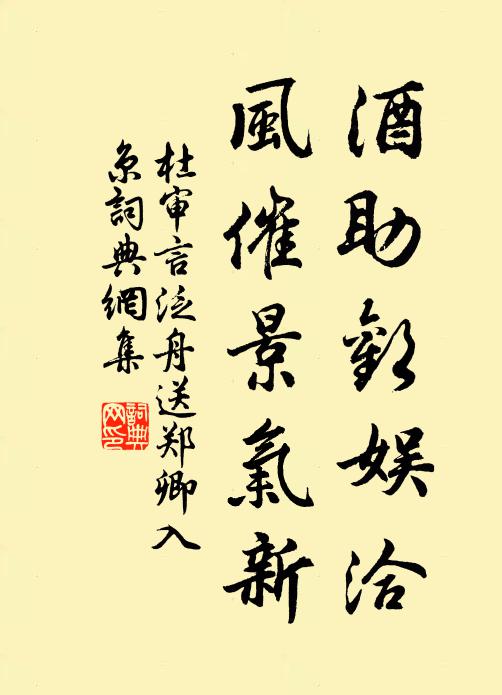 酒助歡娱洽
風催景氣新
杜审言泛舟送郑卿入
京詞典網集
詞典
网印